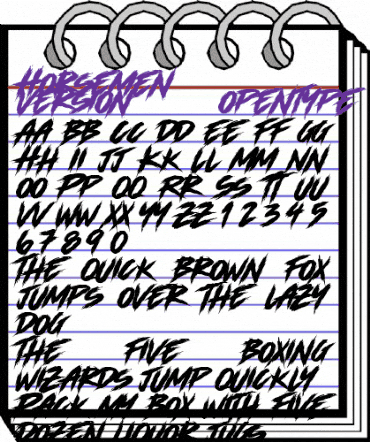 HORSEMEN
VERSION OPENTYPE
AA BB CC DD EE FF GG
HH II JJ KK LL MM NN
OO PP QQ RR SS TT UU
VV WW XX YY ZZ 1 2 3 4 5
6 7 8 9 0
THE QUICK BROWN FOX
JUMPS OVER THE LAZY
DOG
THE FIVE BOXING
WIZARDS JUMP QUICKLY
PACK MY BOX WITH FIVE
DOZEN LIQUOR JUGS